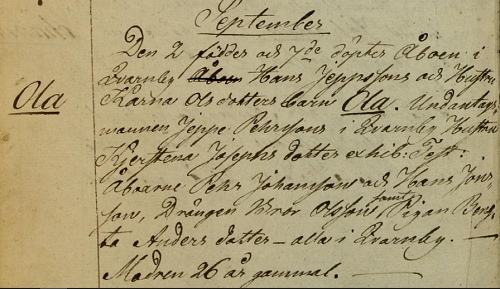 September
Den 2 födder och 7de döptes Åboen i
Qvarnby Åboen Hans Jeppssons och Hustru
Ola
Karna Olsdotters barn Ola. Undantags-
mannen Jeppe Pehrssons i Qvarnby Hustru
Kjerstena Josephs dotter exhib: Test:
Åboarne Pehr Johansson och Hans Jons-
son, Drängen Bror Olsson samt Pigan Beng-
ta Anders dotter - alla i Qvarnby. —
Modren 26 år gammal. —